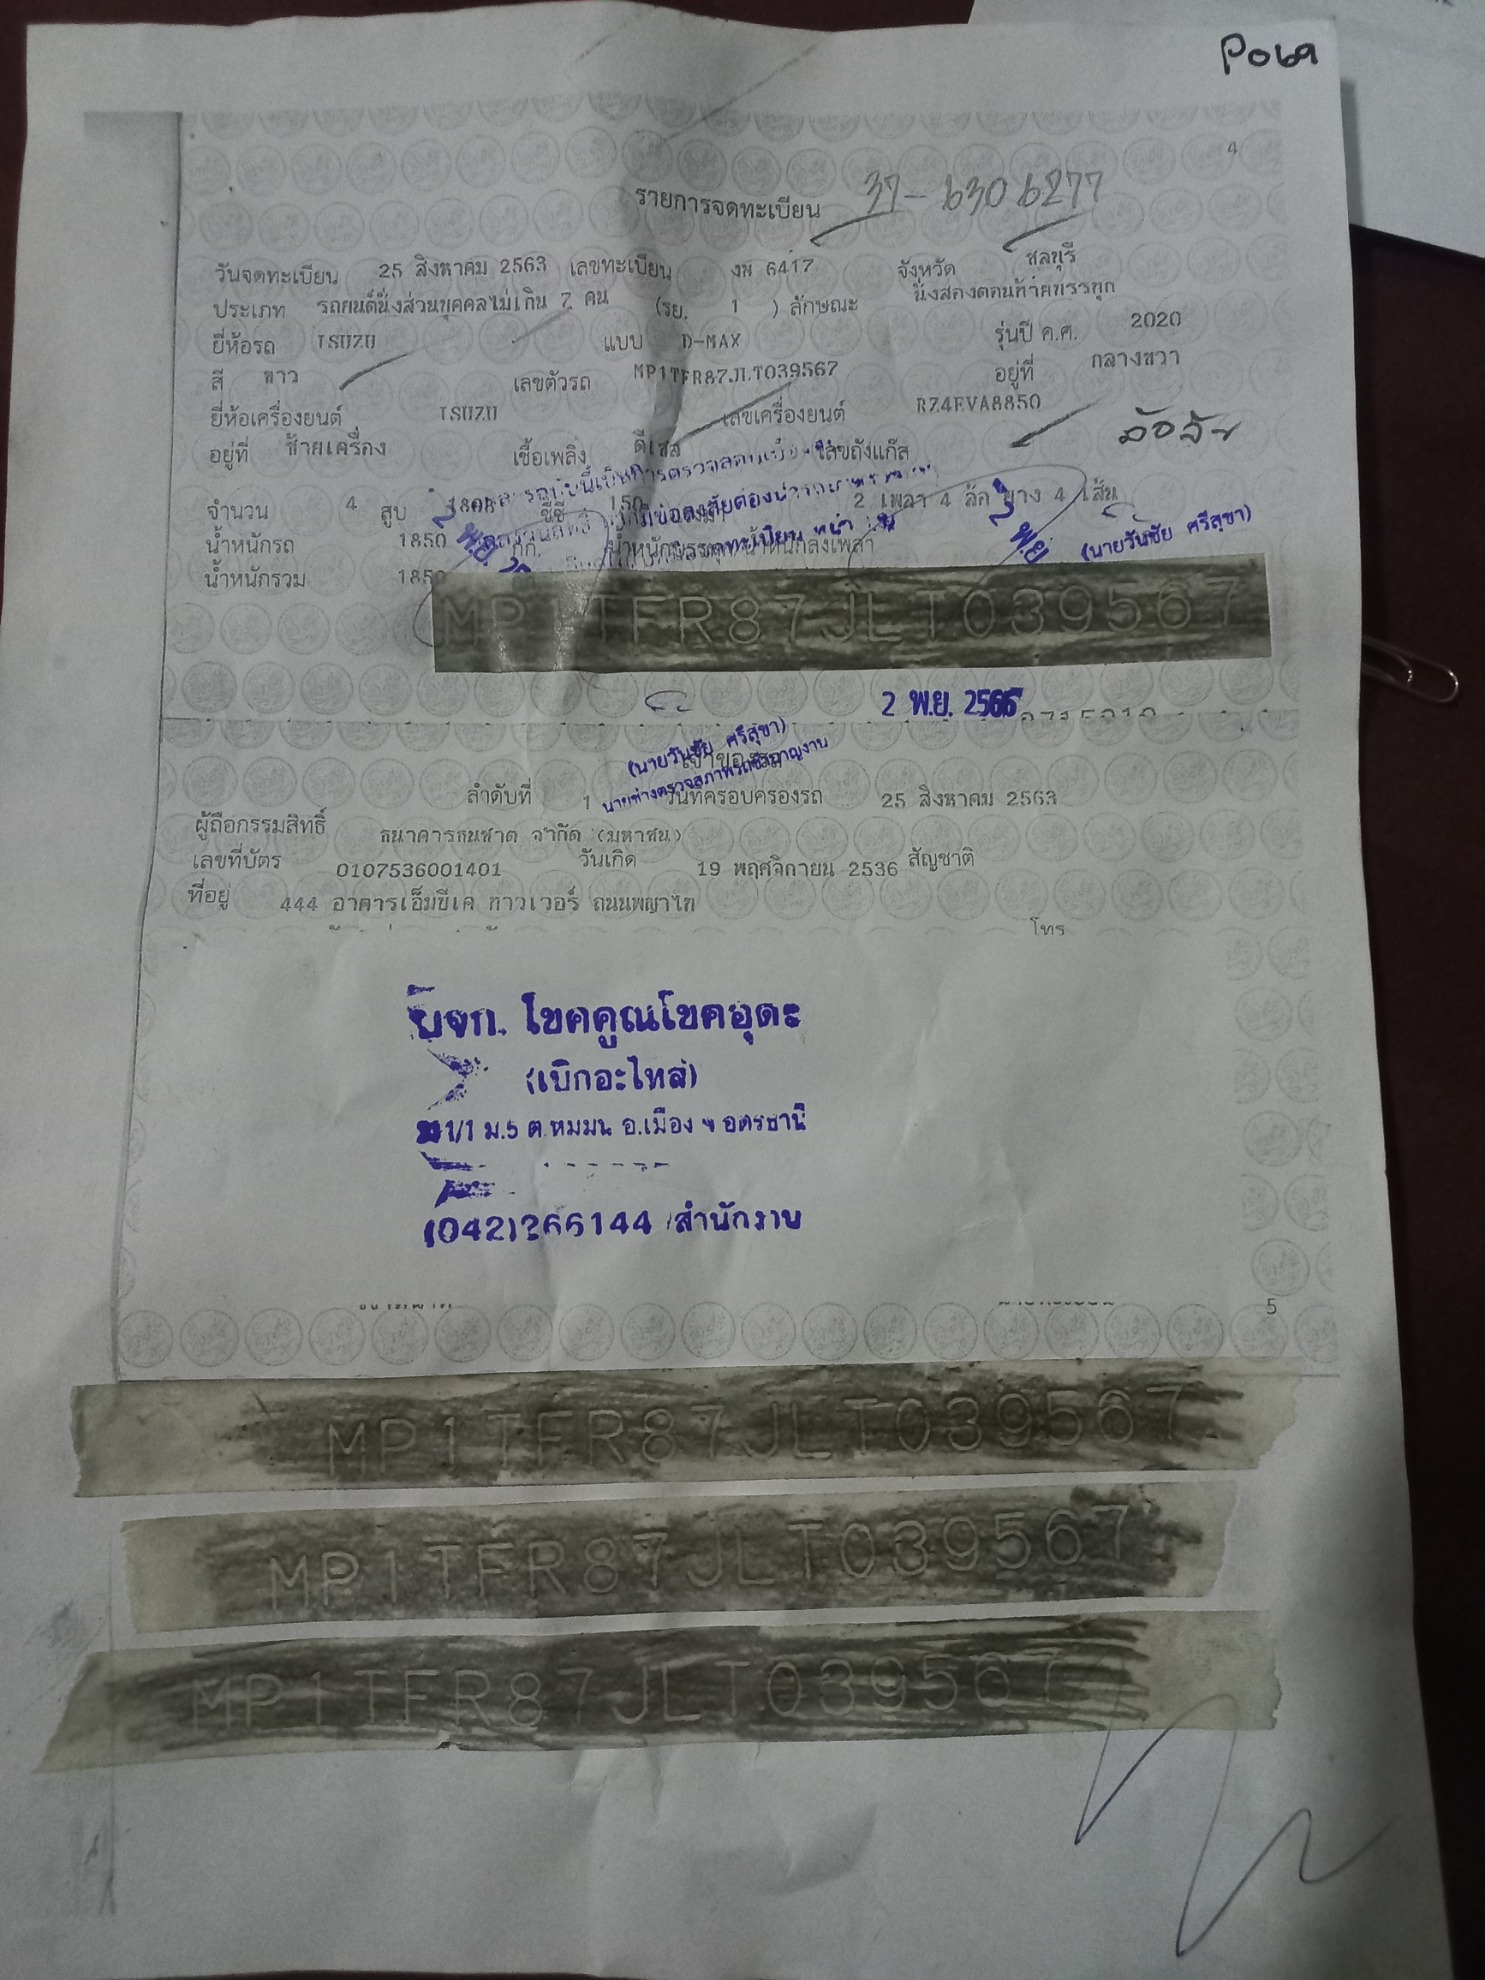 4
รายการจดทะเบียน 37-6306277
วันจดทะเบียน 25 สิงหาคม 2563 เลขทะเบียน งพ 6417 จังหวัด ชลบุรี
ประเภท รถยนต์นั่งส่วนบุคคลไม่เกิน 7 คน (รย. 1 ) ลักษณะ นั่งสองตอนท้ายบรรทุก
ยี่ห้อรถ ISUZU แบบ D-MAX รุ่นปี ค.ศ. 2020
สี ขาว เลขตัวรถ MP1TFR87JLT039567 อยู่ที่ กลางขวา
ยี่ห้อเครื่องยนต์ ISUZU เลขเครื่องยนต์ RZ4EVA8850
อยู่ที่ ซ้ายเครื่อง เชื้อเพลิง ดีเซล เลขถังแก๊ส
จำนวน 4 สูบ 1898 ซีซี 150 2 เพลา 4 ล้อ ยาง 4 เส้น
น้ำหนักรถ 1850 กก. น้ำหนักบรรทุก/น้ำหนักลงเพลา
(นายวันชัย ศรีสุขา)
น้ำหนักรวม 1850
2 พ.ย.
MP1TFR87JLT039567
2 พ.ย. 2566
(นายวันชัย ศรีสุขา)
นายช่างตรวจสภาพรถชำนาญงาน
เจ้าของรถ
ลำดับที่ 1 วันที่ครอบครองรถ 25 สิงหาคม 2563
ผู้ถือกรรมสิทธิ์ ธนาคารธนชาต จำกัด (มหาชน)
เลขที่บัตร 0107536001401 วันเกิด 19 พฤศจิกายน 2536 สัญชาติ
ที่อยู่ 444 อาคารเอ็มบีเค ทาวเวอร์ ถนนพญาไท
โทร
บจก. โชคคูณโชคอุดะ
(เบิกอะไหล่)
1/1 ม.5 ต.หมมน อ.เมือง จ อุดรธานี
(042)266144 สำนักงาน
5
MP1TFR87JLT039567
MP1TFR87JLT039567
MP1TFR87JLT039567